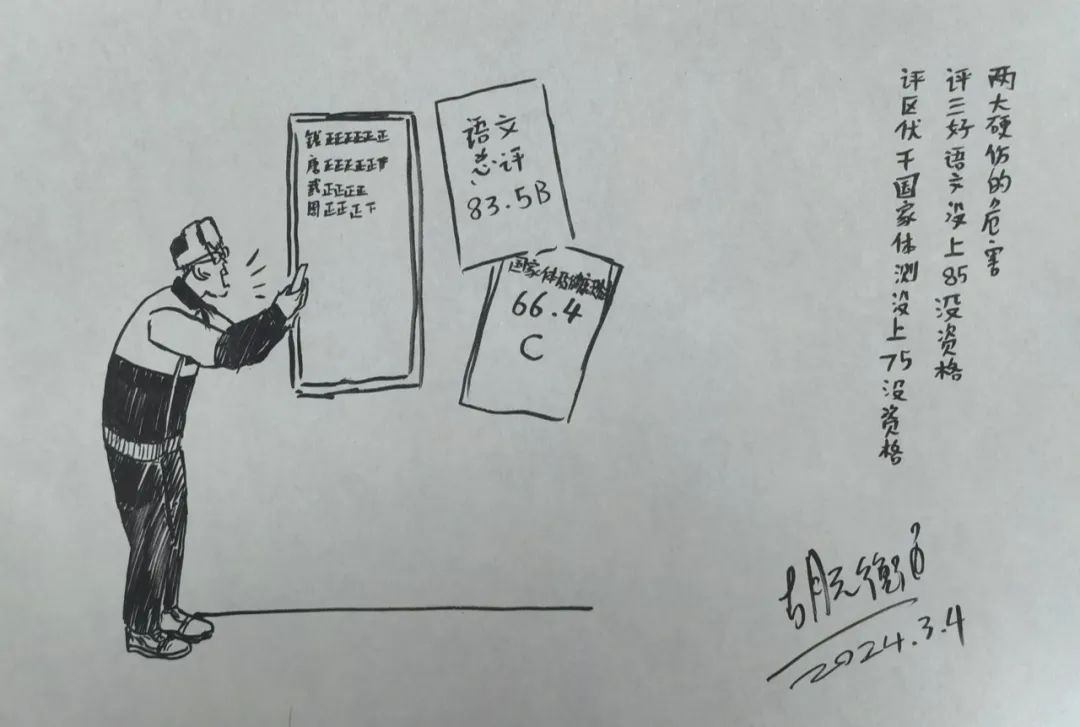 钱正正正正正
唐正正正正
武正正正正
周正正正下
语文
总评
83.5B
66.4
C
两大硬伤的危害
评三好语文没上85没资格
评区优干国家体测没上75没资格
2024.3.4